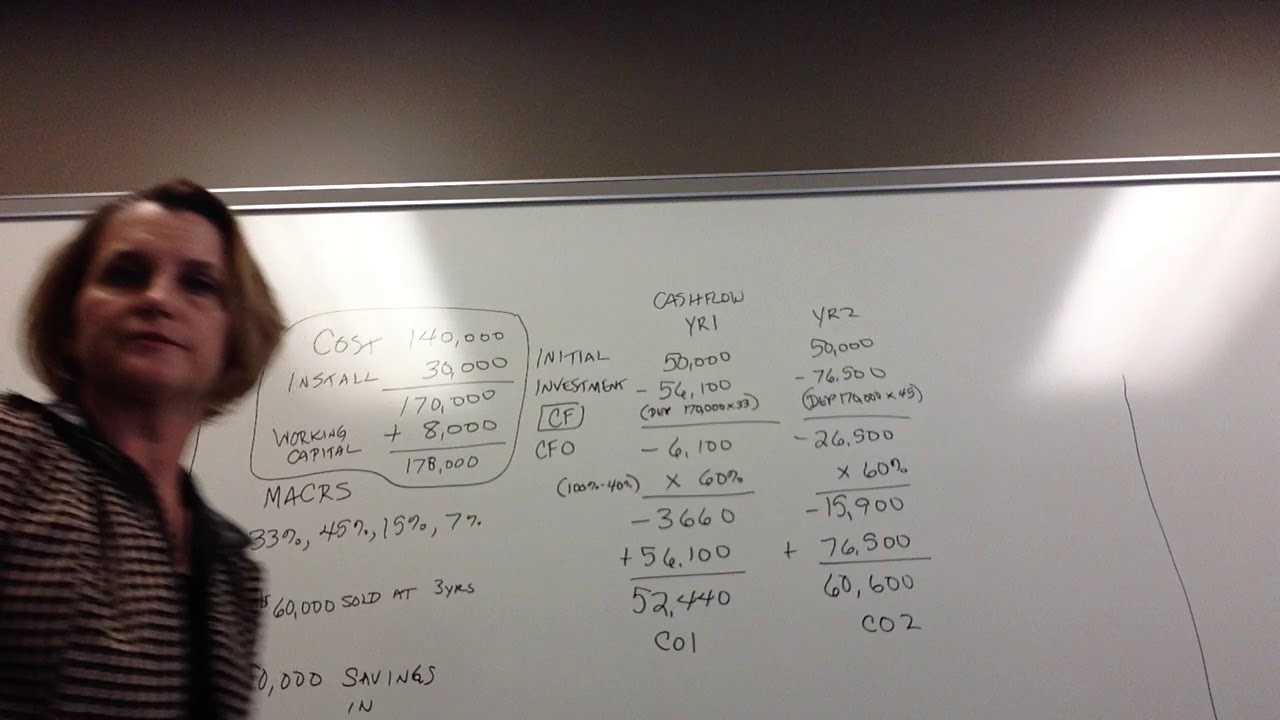 COST 140,000
INSTALL 30,000
170,000
WORKING CAPITAL + 8,000
178,000
MACRS
33%, 45%, 15%, 7%
$60,000 SOLD AT 3YRS
0,000 SAVINGS
IN
INITIAL
INVESTMENT
CF
CFO
(100%-40%)
CASHFLOW
YR1
50,000
- 56,100
(DEP 170,000 x 33)
- 6,100
x 60%
- 3660
+ 56,100
52,440
CO1
YR2
50,000
- 76,500
(DEP 170,000 x 45)
- 26,500
x 60%
- 15,900
+ 76,500
60,600
CO2